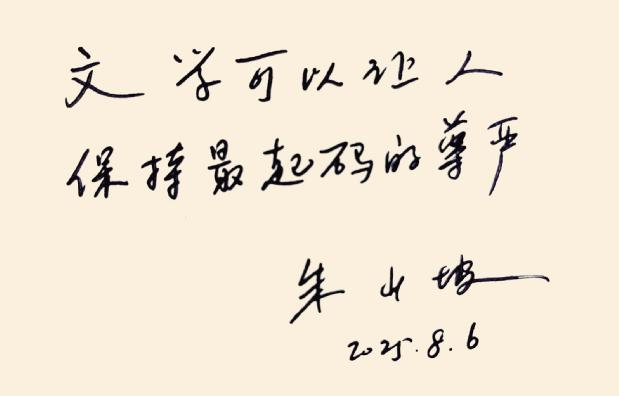 文学可以让人
保持最起码的尊严
朱山坡
2025.8.6